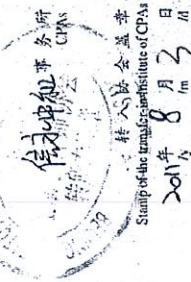 信永中和 事务所
CPAs
转入协会盖章
Stamp of the transfer-in Institute of CPAs
2011年 8 月 3 日
/y /m /d